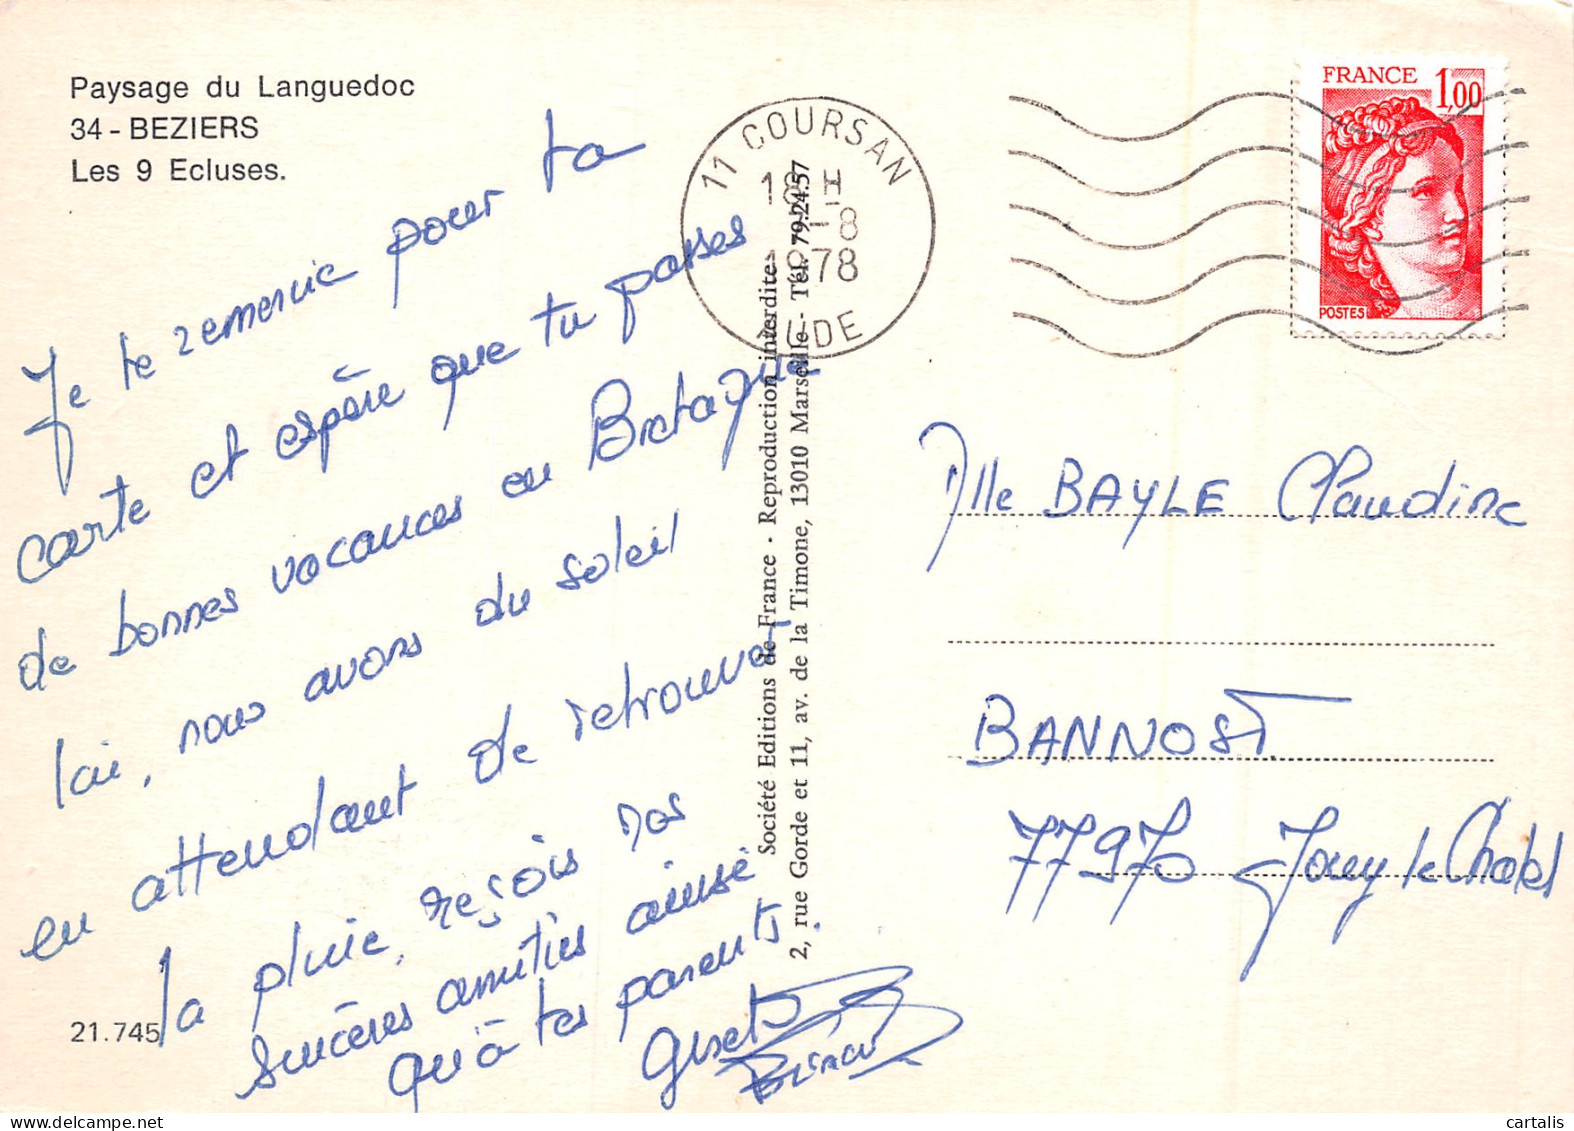 Paysage du Languedoc
34 - BEZIERS
Les 9 Ecluses.
Je te remercie pour ta
carte et espère que tu passes
de bonnes vacances en Bretagne
ici, nous avons du soleil
en attendant de retrouver
la pluie, reçois nos
sincères amitiés ainsi
qu'à tes parents.
21.745
Société Editions de France - Reproduction interdite
2, rue Gorde et 11, av. de la Timone, 13010 Marseille - Tél. 79.24.57
11 COURSAN
18 H
-8
1978
AUDE
FRANCE
1,00
POSTES
Mlle BAYLE Claudine
BANNOST
77970 Jouy le Chatel
cartalis